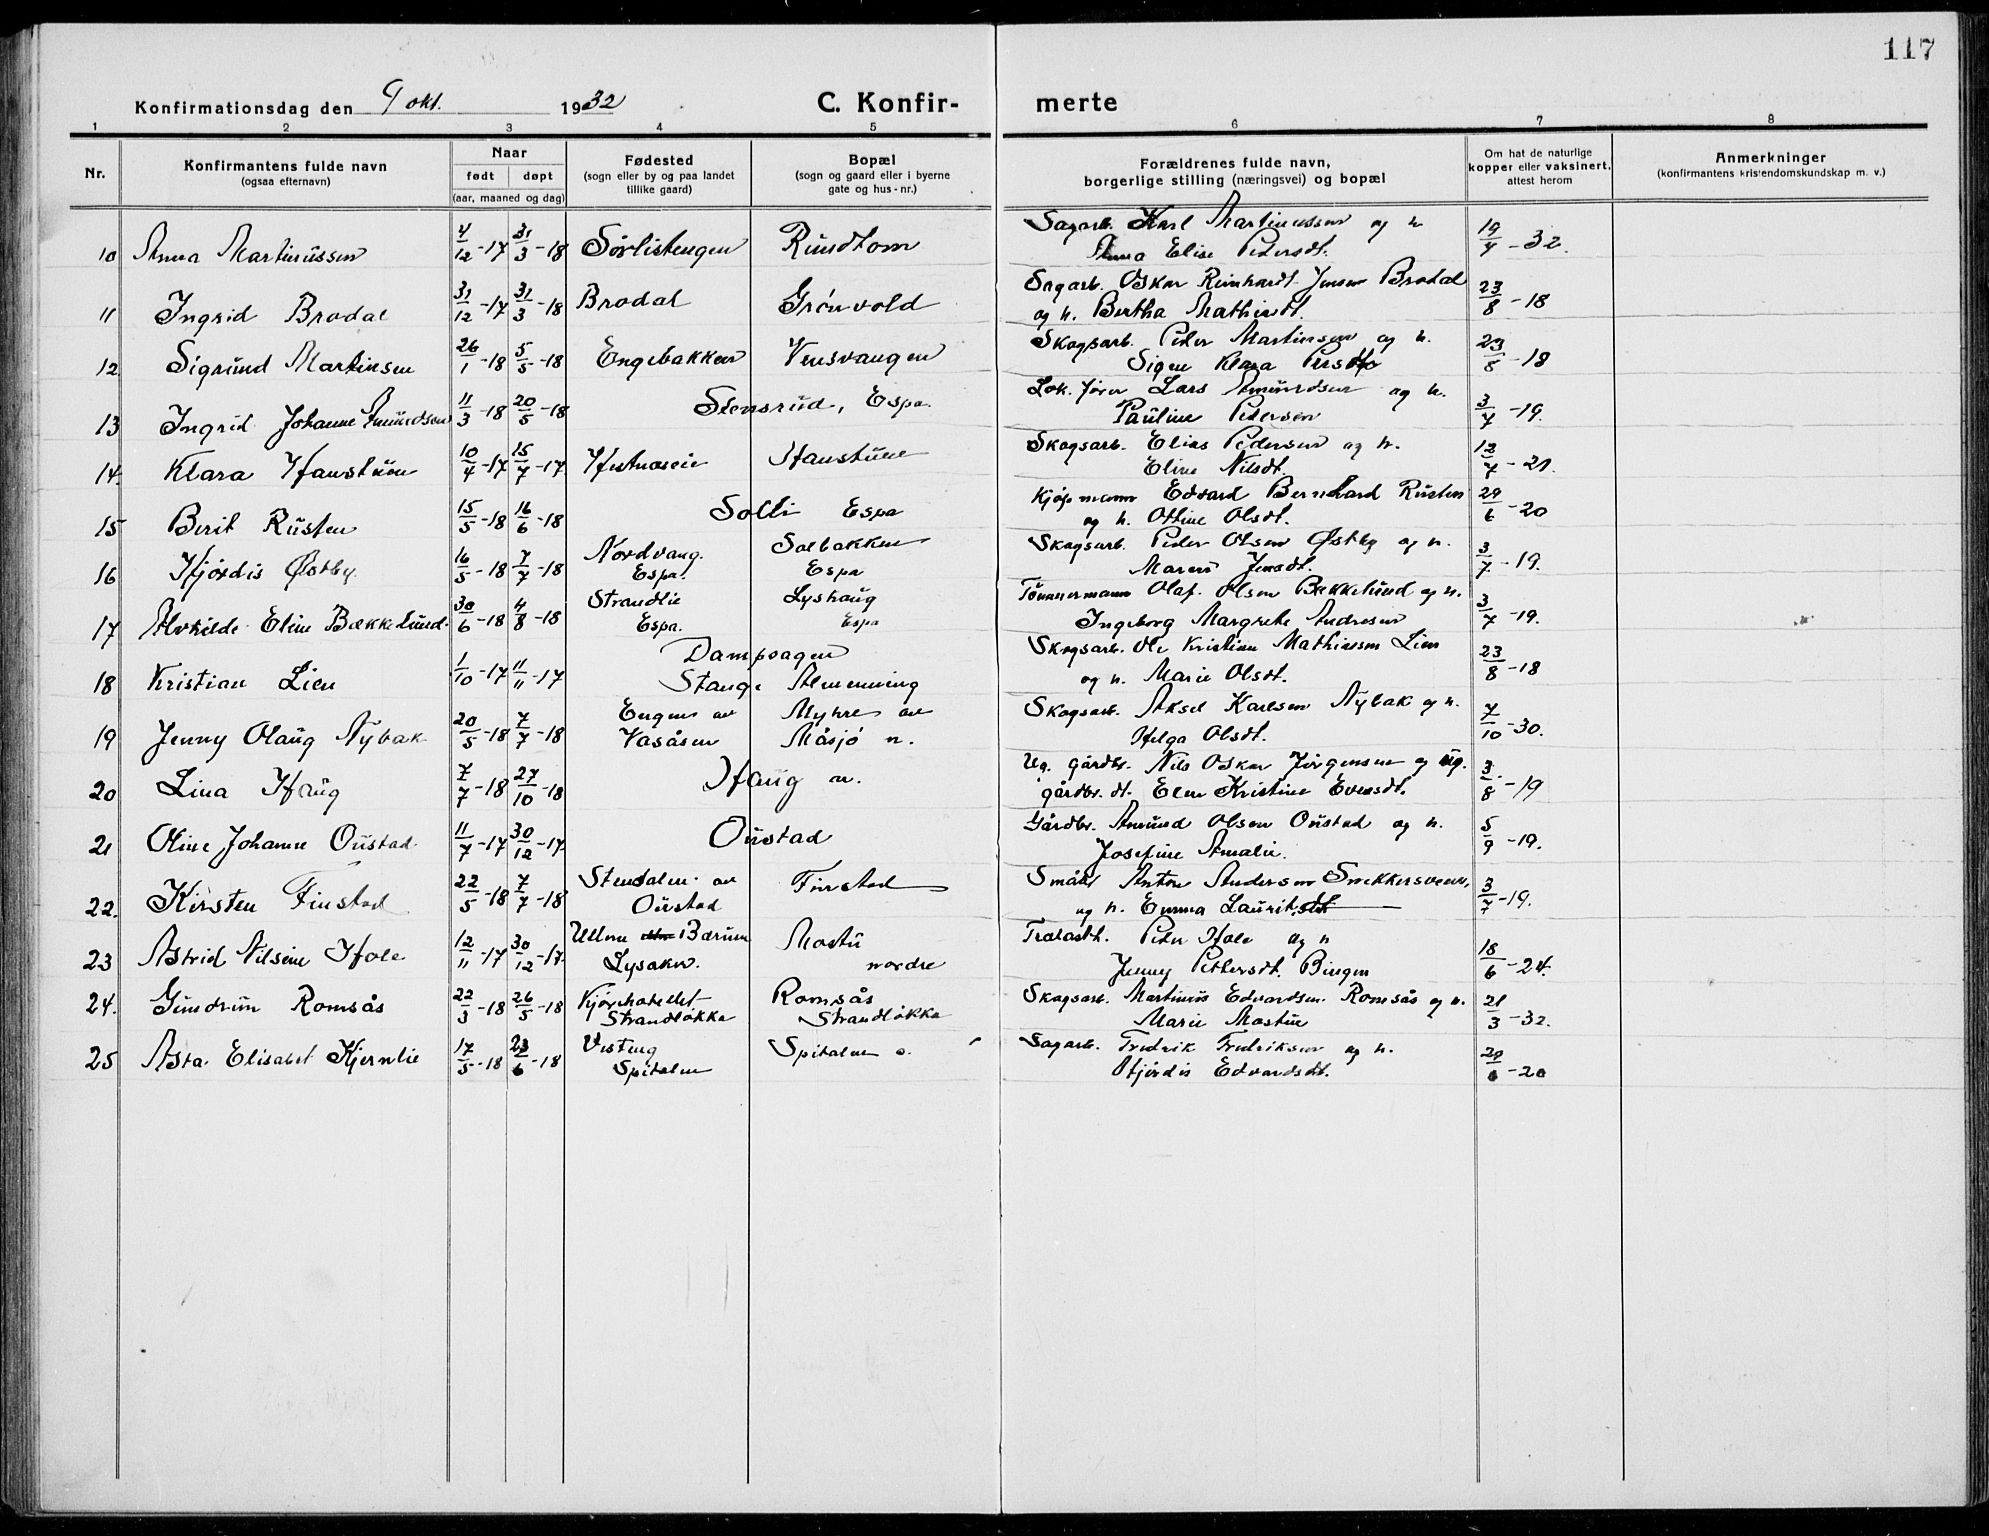 117
Konfirmationsdag den 9 okt. 1932 C. Konfir- merte
1 2 3 4 5 6 7 8
Nr. Konfirmantens fulde navn (ogsaa efternavn) Naar født døpt (aar, maaned og dag) Fødested (sogn eller by og paa landet tillike gaard) Bopæl (sogn og gaard eller i byerne gate og hus-nr.) Forældrenes fulde navn, borgerlige stilling (næringsvei) og bopæl Om hat de naturlige kopper eller vaksinert, attest herom Anmerkninger (konfirmantens kristendomskundskap m. v.)
10 Anna Martinussen 4/12-17 31/3-18 Sørlistengen Rundtom Sagarb. Karl Martinussen og h. Anna Elise Pedersdt. 19/4-32.
11 Ingrid Brodal 31/12-17 31/3-18 Brodal Grønvold Sagarb. Oskar Reinhardt Jensen Brodal og h. Bertha Mathisdt. 23/8-18
12 Sigrund Martinsen 26/1-18 5/5-18 Engebakken Vensvangen Skogsarb. Peder Martinsen og h. Signe Klara 23/8-18
13 Ingrid Johanne Amundsen 11/3-18 20/5-18 Stensrud, Espa. Lok. fører Lars Amundsen og h. Pauline Pedersen 3/7-19.
14. Klara Haustuen 10/4-17 15/7-17 Haustuen Skogsarb. Elias Pedersen og h. Eline Nilsdt. 12/7-21.
15 Berit Rusten 15/5-18 16/6-18 Solli Espa Kjøpmann Edvard Bernhard Rusten og h. Ottine Olsdt. 29/6-20
16 Hjørdis Østby. 16/5-18 7/7-18 Nordvang. Espa. Solbakken Espa Skogsarb. Peder Olsen Østby og h. Maren Jensdt. 3/7-19.
17 Alvhilde Eline Bækkelund. 30/6-18 4/8-18 Strandlie Espa. Lyshaug Espa Tømmermann Olaf Olsen Bækkelund og h. Ingeborg Margrete Andresen 3/7-19.
18 Kristian Lien 1/10-17 11/11-17 Dampsagen Stange Almenning Skogsarb. Ole Kristian Mathiassen Lien og h. Marie Olsdt. 23/8-18
19 Jenny Olaug Nybak 20/5-18 7/7-18 Engen av Vasåsen Myhre av Måsjø n. Skogsarb. Aksel Karlsen Nybak og h. Helga Olsdt. 7/10-30.
20 Lina Haug 7/7-18 27/10-18 Haug Ug. gårdbr. Nils Oskar Jørgensen og ug. gårdbr. dt. Elen Kristine Evensdt. 3/8-19
21 Oline Johanne Oustad 11/7-17 30/12-17. Oustad Gårdbr. Amund Olsen Oustad og h. Josefine Amalie. 5/9-19.
22. Kirsten Finstad 22/5-18 7/7-18 Stendalen av Oustad Finstad Småbr. Anton Andersen Snekkersveen, og h. Emma Lauritsdt. 3/7-19.
23 Astrid Nilsine Hole 12/11-17 30/12-17. Bærum Lysaker. Mostu nordre Peder Hole og h. Jenny Pettersdt. Bingen 18/6-24.
24. Gundrun Romsås 22/3-18 26/5-18 Strandløkka Romsås Strandløkka Skogsarb. Martinus Edvardsen Romsås og h. Marie Mostue 21/3-32.
25 Asta Elisabet Kjernlie 17/5-18 23/6-18 Vesteng Spitalen Spitalen ø. Sagarb. Fredrik Fredriksen og h. Hjørdis Edvardsdt. 29/6-20